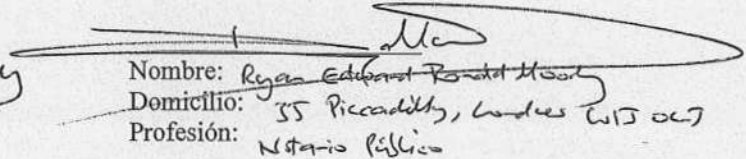 Nombre: Ryan Edward Ronald Moody
Domicilio: 35 Piccadilly, Londres W1J 0LJ
Profesión: Notario Público